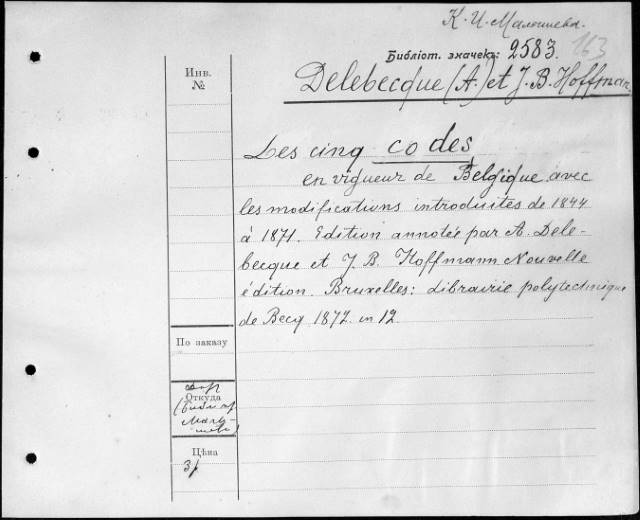 К. И. Малышева.
163
Библіот. значекъ: 2583.
Инв.
№
Delebecque (A.) et J. B. Hoffman
Les cinq codes
en vigueur de Belgique avec
les modifications introduites de 1844
à 1871. Edition annotée par A. Dele-
becque et J. B. Hoffmann Nouvelle
édition. Bruxelles: Librairie polytechnique
de Becq 1872. in 12.
По заказу
Откуда
Цѣна
3/